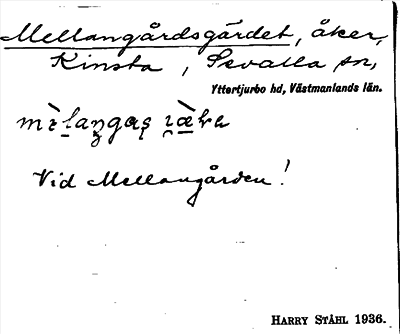 Mellangårdsgärdet, åker,
Kinsta, Skvalla sn,
Yttertjurbo hd, Västmanlands län.
Vid Mellangården!
HARRY STÅHL 1936.